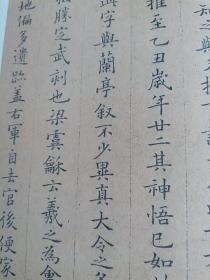 知之與
推至乙丑歲年廿二其神悟已如
此字與蘭亭叙不少異真大令之
勝定武刻也梁虞龢云羲之為會
地偏多遺跡蓋右軍自去官後便家